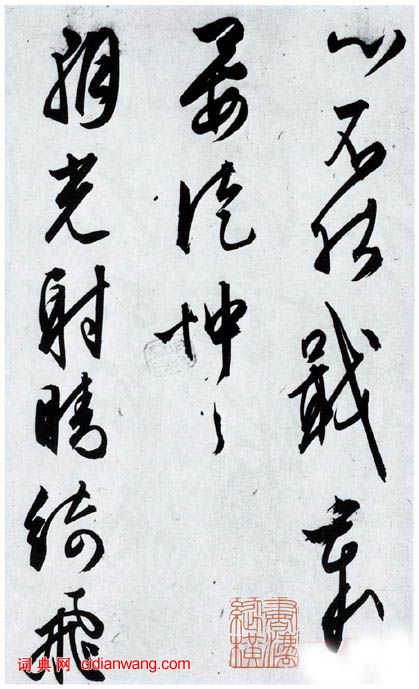 心不能戢
要徒忡々
朝光射晴綺飛
词典网 cidianwang.com